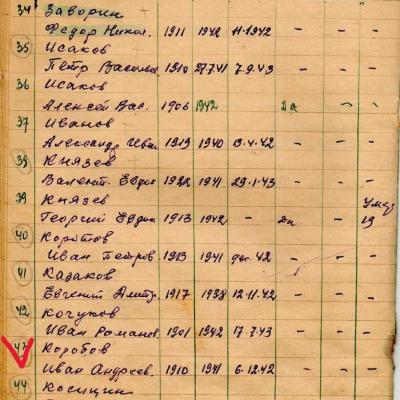 34 Заворин
Федор Никол. 1911 1942 11.1942 - -
35 Исаков
Петр Васильев 1910 27.7.41 7.9.43 - -
36 Исаков
Алексей Вас. 1906 1942 Да - -
37 Иванов
Александр Иван 1919 1940 13.4.42 - -
38 Князев
Валент. Евдок 1922 1941 29.1.43 - -
39 Князев
Георгий Евдок 1913 1942 - Да - 19
40 Коротов
Иван Петров 1913 1941 42 - -
41 Казаков
Евгений Дмитр. 1917 1938 12.11.42 - -
42 Кочуков
Иван Романов. 1901 1942 17.7.43 - -
43 Коробов
Иван Андреев. 1910 1941 6.12.42 - -
44 Косицин